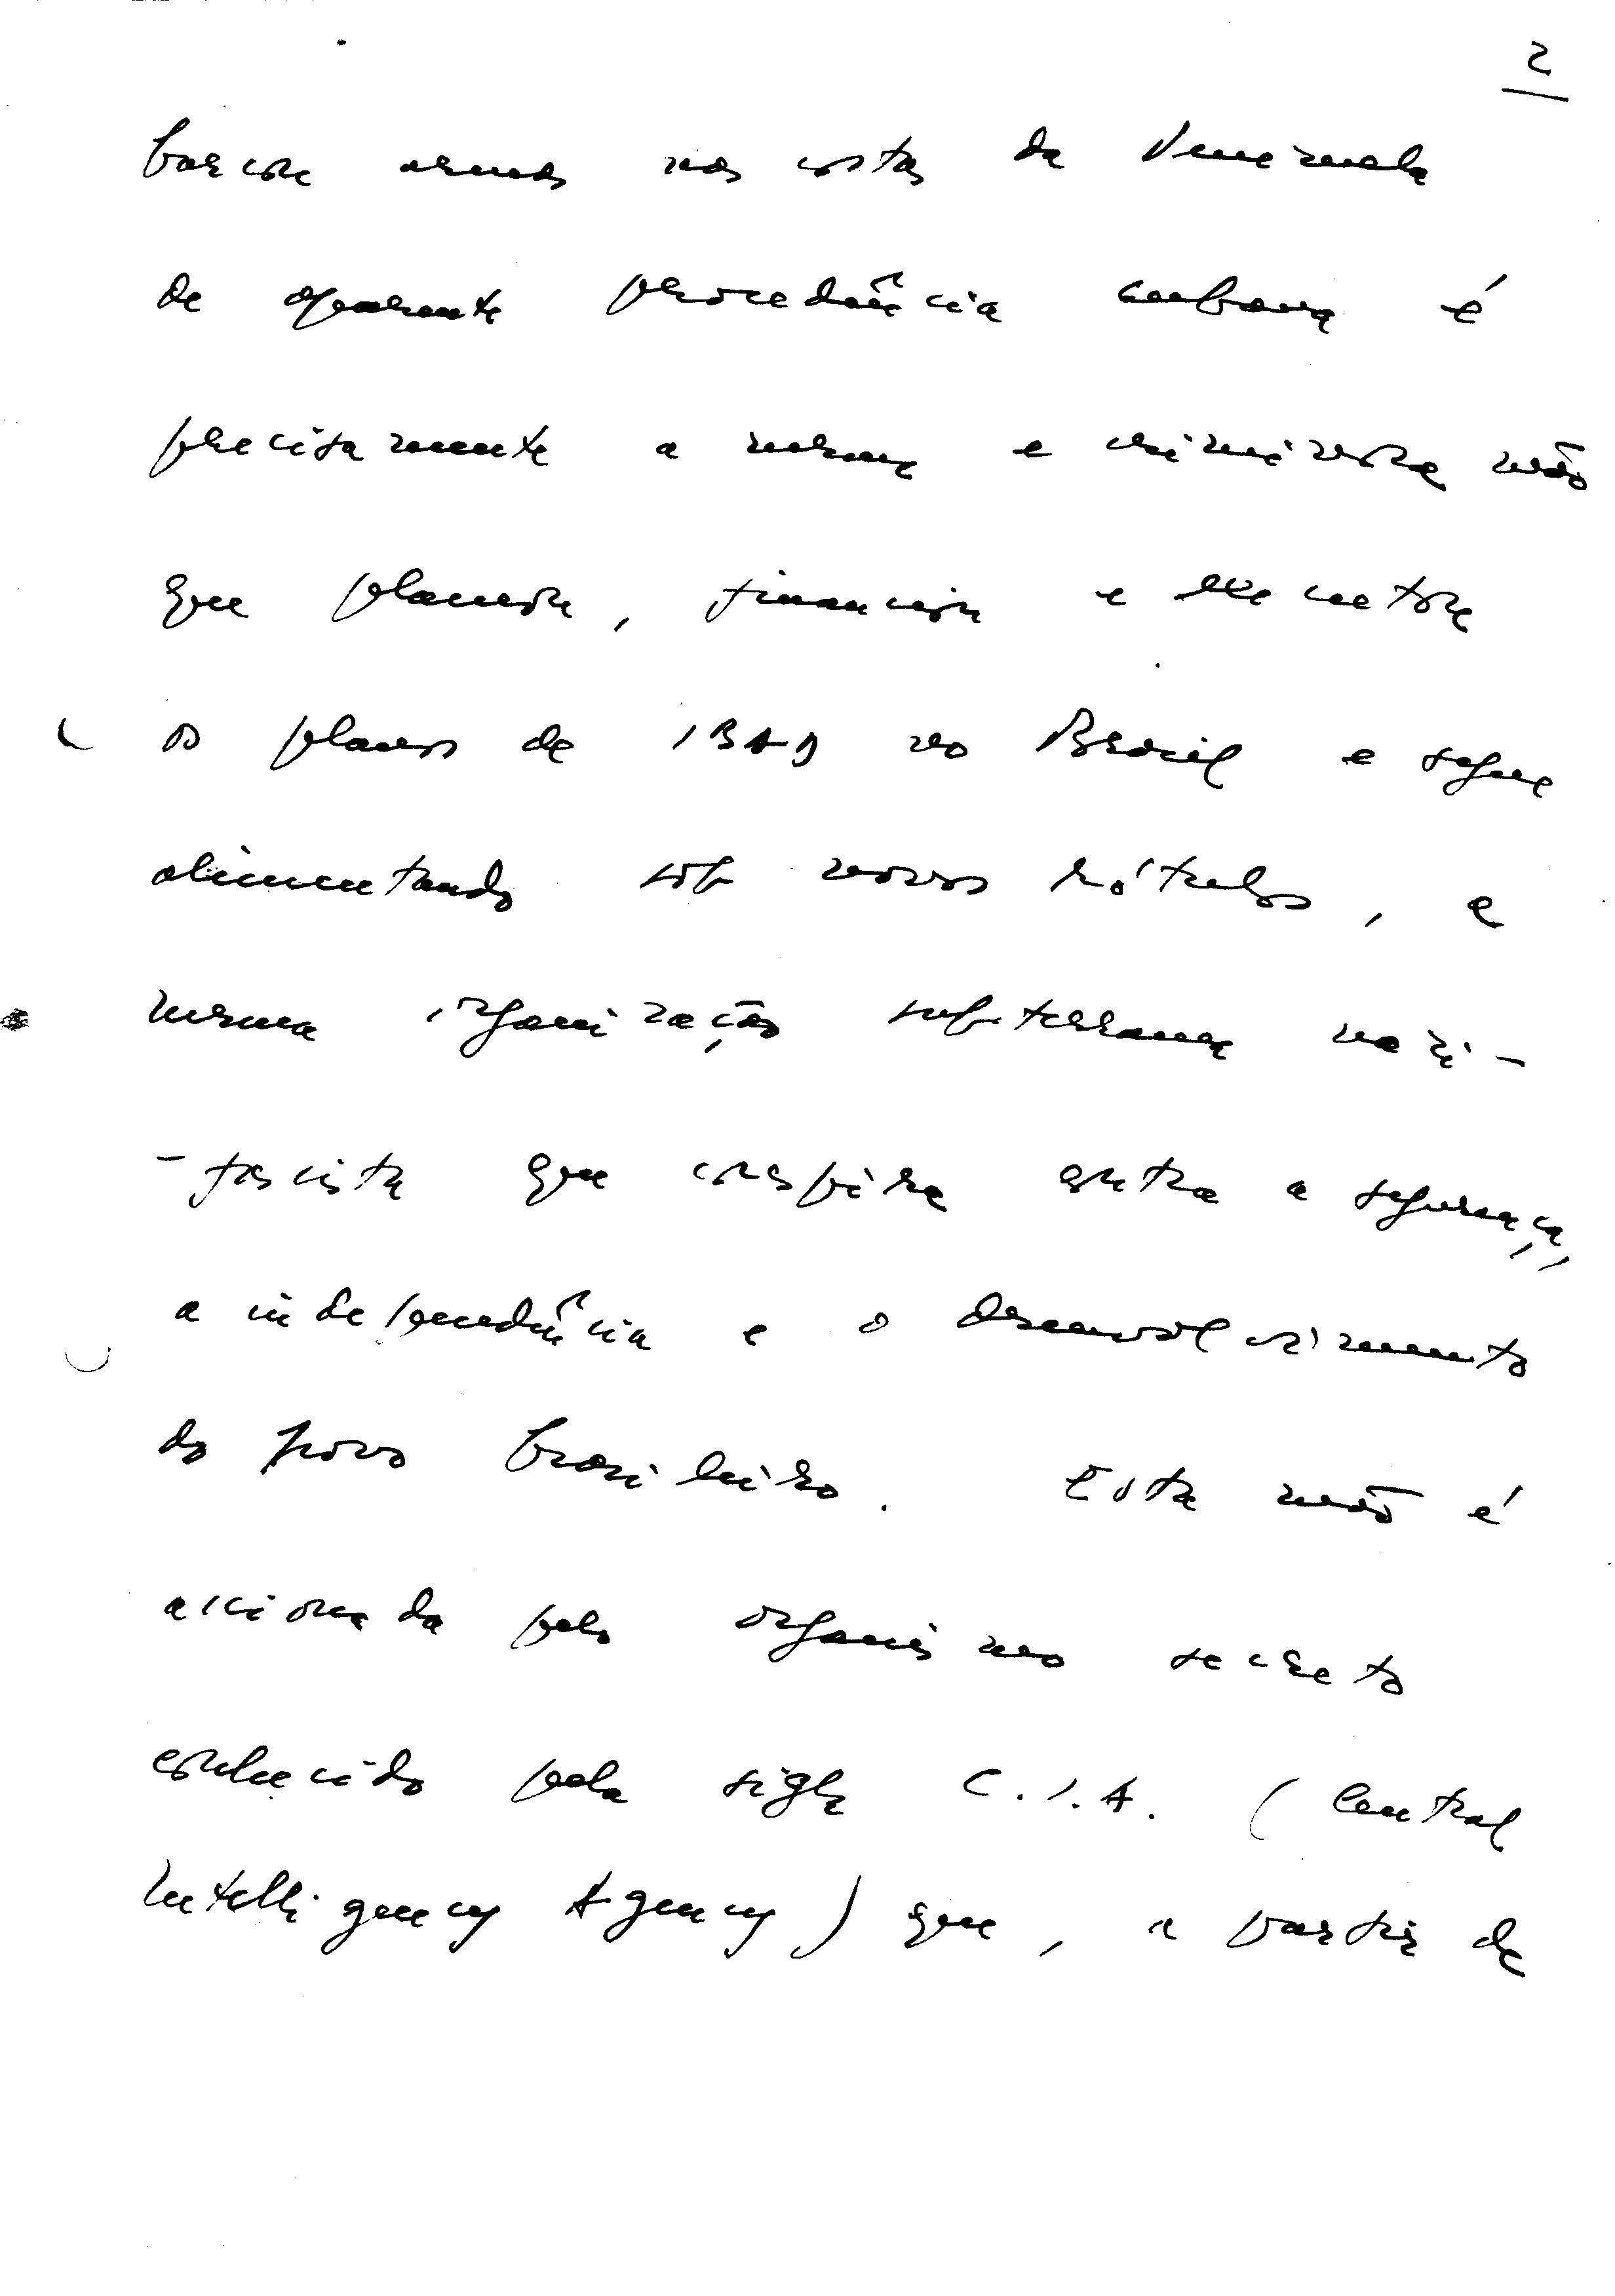 2
barcou armas nas costas da Venezuela
de aparente procedência cubana é
precisamente a mesma e criminosa mão
que planeou, financiou e executou
os planos do IBAD no Brasil e segue
alimentando sob novos rótulos, a
mesma organização subterranea nazi-
-fascista que conspira contra a segurança,
a independência e o desenvolvimento
do povo brasileiro. Esta mão é
acionada pelo organismo secreto
conhecido pela sigla C.I.A. (Central
Intelligency Agency) que, a partir de